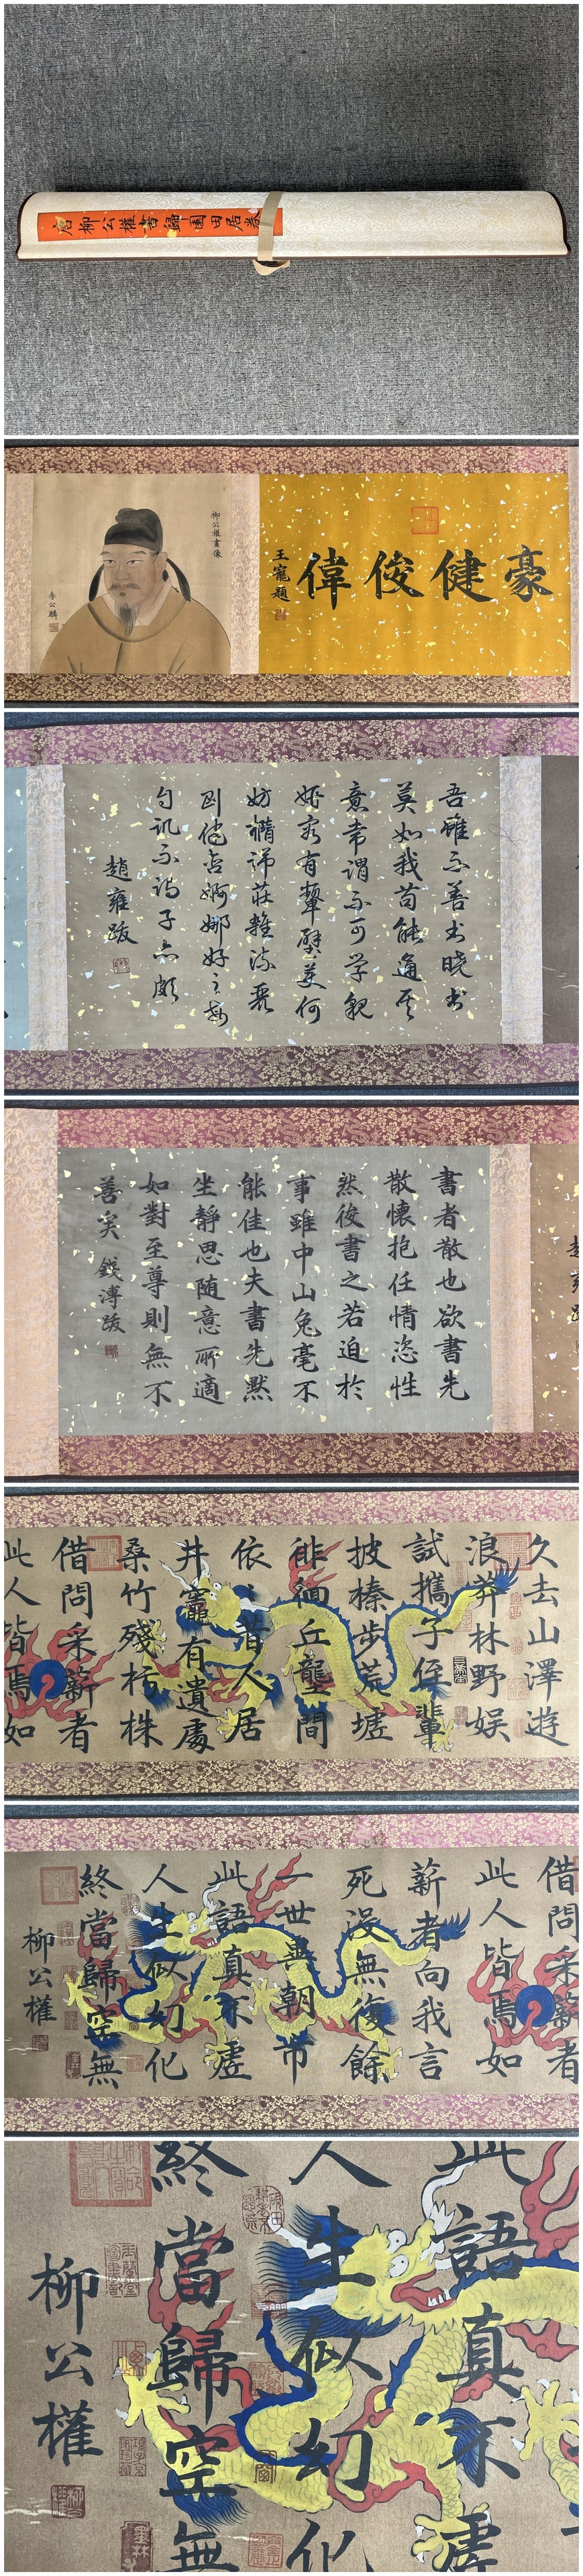 唐柳公權書歸園田居卷
豪健俊偉
王寵題
柳公權畫像
李公麟
吾雖不善書曉書
莫如我苟能通其
意常謂不可學貌
妍容有顰璧美何
妨橢端莊雜流麗
剛健含婀娜好之每
自譏不謂子亦頗
趙雍跋
書者散也欲書先
散懷抱任情恣性
然後書之若迫於
事雖中山兔毫不
能佳也夫書先默
坐靜思隨意所適
如對至尊則無不
善矣 錢溥跋
久去山澤遊
浪莽林野娛
試攜子侄輩
披榛步荒墟
徘徊丘壟間
依昔人居
井竈有遺處
桑竹殘朽株
借問采薪者
此人皆焉如
借問采薪者
此人皆焉如
薪者向我言
死沒無復餘
一世異朝市
此語真不虛
人生似幻化
終當歸空無
柳公權
此語真不虛
人生似幻化
終當歸空無
柳公權